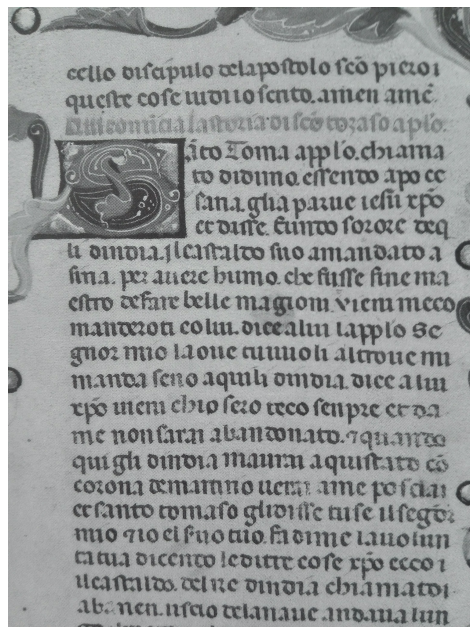 cello discipulo delapostolo sc̄o piero i
queste cose iudi io scrito. amen amē.
Qui comi̅cia la storia di sc̄o tomaso aplo.
S āto Toma appl'o. chiama
to didimo. essendo apo ce
saria. gli a parue iesu xp̄o
et disse. Eunto sorore deq
li dindia. Il castaldo suo a mandato a
siria. per auere humo. che fusse fine ma
estro de fare belle magioni. vieni meco
manderoti co lui. dice a lui lapplo Se
gnor mio la oue tu uuoli altroue mi
manda seno aquili dindia. dice a lui
xp̄o uieni chio sero teco senpre et da
me non sarai abandonato. ⁊ quando
qui gli dindia maurai aquistato cō
corona de martirio uerai ame po sciai
et santo tomaso gli disse tu se il segor
mio ⁊ io el suo tuo. fa di me la uolun
ta tua dicento le ditte cose xp̄o ecco i
il castaldo. del re dindia chiamato i
abanen. uscio dela naue andaua lun